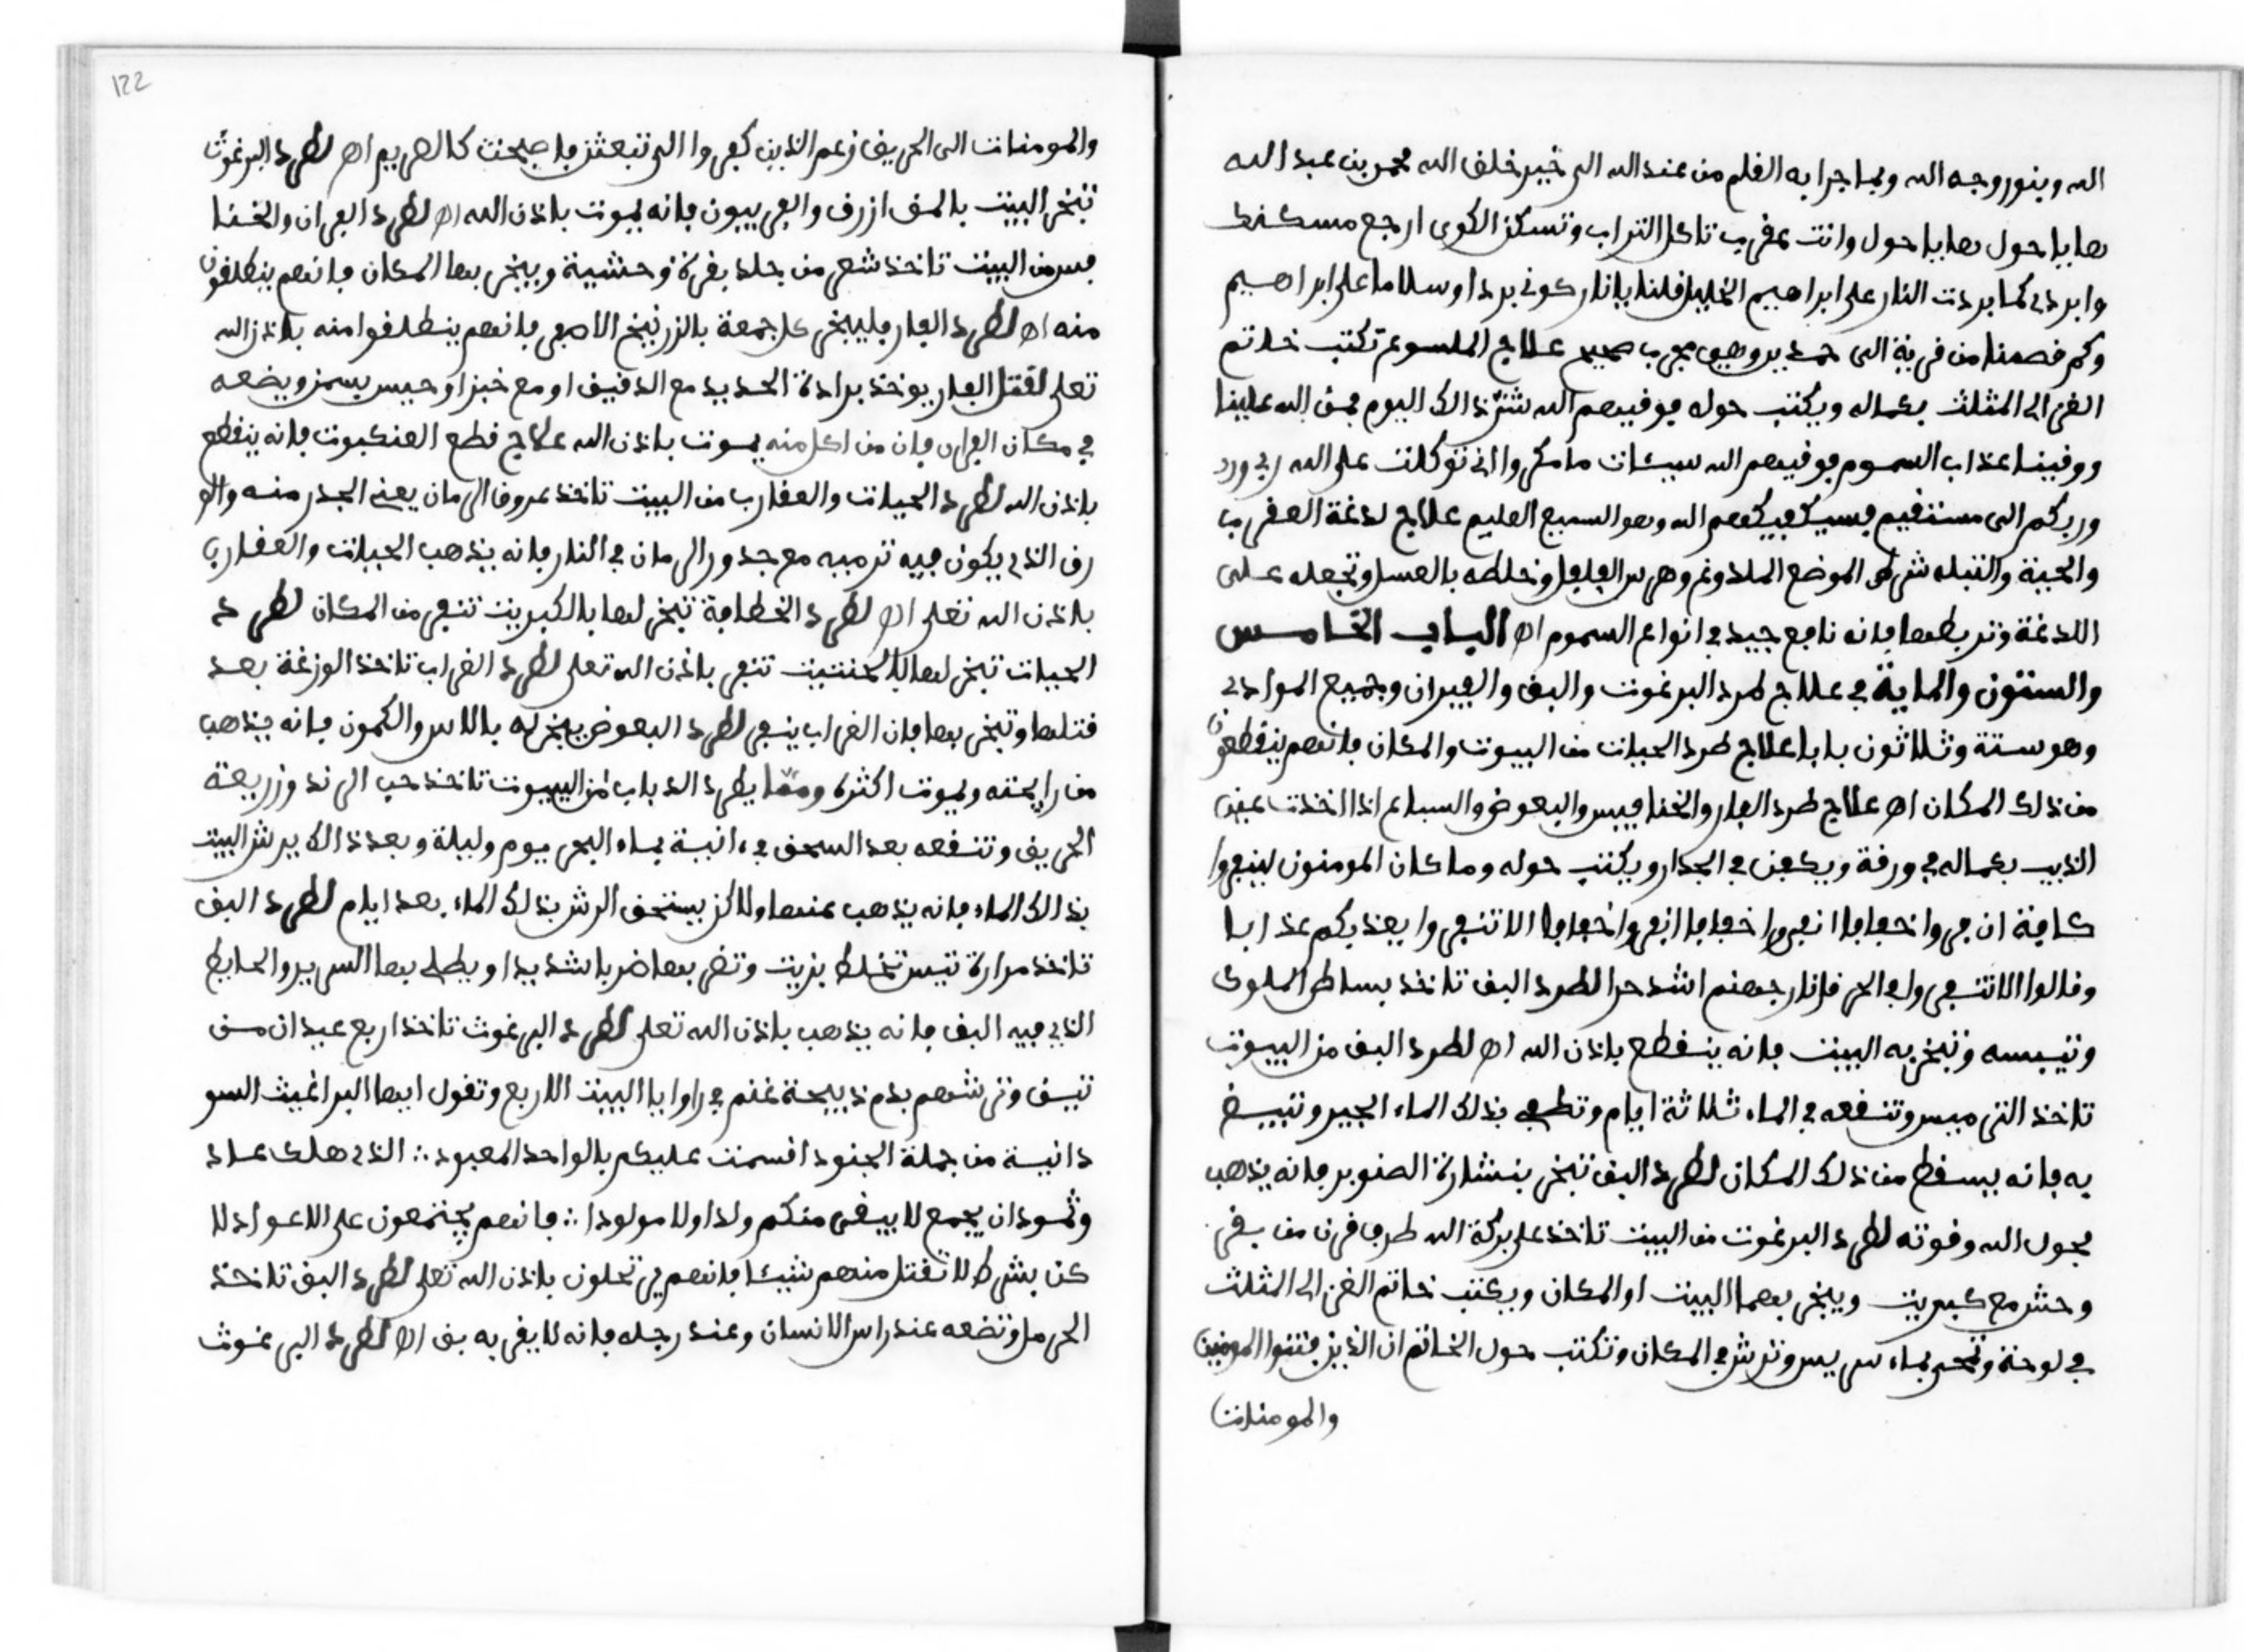 الله وبنور وجه الله وبما جرا به القلم من عند الله الى خير خلق الله محمد بن عبد الله
هايا حول هايا حول وانت عقرب تاكل التراب وتسكن الكوى ارجع مسكنك
وابردي كما بردت النار على ابراهيم الخليل قلنا يانار كوني بردا وسلاما على ابراهيم
وكم قصمنا من قرية الى حمدير وهو مجرب صحيح علاج الملسوع تكتب خاتم
الغزالى المثلث بكماله ويكتب حوله فوقيهم الله شر ذالك اليوم فمن الله علينا
ووقينا عذاب السموم فوقيهم الله سيئات ما مكروا اني توكلت على الله ربي ورد
وربكم الى مستقيم فسيكفيكهم الله وهو السميع العليم علاج لدغة العقرب
والحية والقتله شرط الموضع الملدوغ وهرس الفلفل وخلطه بالعسل وتجعله على
اللدغة وتربطها فانه نافع جيد في انواع السموم اه الباب الخامس
والستون والماية في علاج طرد البرغوث والبق والفيران وجميع الموادي
وهو ستة وثلاثون بابا علاج طرد الحيات من البيوت والمكان فانهم ينقطعون
من ذلك المكان اه علاج طرد الفار والخنافيس والبعوض والسباع اذا اخذت عين
الذيب بكماله في ورقة ويكعن في الجدار ويكتب حوله وما كان المومنون لينفروا
كافة انفروا خفافا انفروا خفافا انفروا خفافا الا تنفروا يعذبكم عذابا
وقالوا الا تنفروا في الحر قل نار جهنم اشد حرا لطرد البق تاخذ بساط الملوك
وتيبسه وتبخر به البيت فانه ينقطع باذن الله اه لطرد البق من البيوت
تاخذ الترميس وتنقعه في الماء ثلاثة ايام وتطفي بذلك الماء الجير وتبيض
به فانه يسقط من ذلك المكان لطرد البق تبخر بنشارة الصنوبر فانه يذهب
بحول الله وقوته لطرد البرغوث من البيت تاخذ على بركة الله طرف قرن من بقر
وحش مع كبريت ويبخر بهما البيت او المكان ويكتب خاتم الغزالى المثلث
في لوحة وتمحى بماء سريس وترش في المكان وتكتب حول الخاتم ان الذين فتنوا المومنين
والمومنات
122
والمومنات الى الحريق زعم الذين كفروا الى تبعثن فاصبحت كالصريم اه لطرد البرغوث
تبخر البيت بالمق ازرق والفربيون فانه يموت باذن الله اه لطرد الفران والخنا
فس من البيت تاخذ شعر من جلد بقرة وحشية ويبخر بها المكان فانهم ينطلقون
منه اه لطرد الفار فليبخر كل جمعة بالزرنيخ الاصفر فانهم ينطلقوا منه باذن الله
تعلى لقتل الفار يوخذ برادة الحديد مع الدقيق او مع خبز او حيس بسمن ويضعه
في مكان الفران فان من اكل منه يموت باذن الله علاج قطع العنكبوت فانه ينقطع
باذن الله لطرد الحيات والعقارب من البيت تاخذ عروق الرمان يعني الجدر منه والو
رق الذي يكون فيه ترميه مع جدور الرمان في النار فانه يذهب الحيات والعقارب
باذن الله تعلى اه لطرد الخطافة تبخر لها بالكبريت تنفر من المكان لطرد
الحيات تبخر لها بالحنتيت تنفر باذن الله تعلى لطرد الغراب تاخذ الوزغة بعد
قتلها وتبخر بها فان الغراب ينفر لطرد البعوض يبخر له بالاس والكمون فانه يذهب
من رايحته ويموت اكثره ومما يطرد الذباب من البيوت تاخذ حب الرند وزريعة
الحريق وتنقعه بعد السحق في ءانية بماء البحر يوم وليلة وبعد ذالك يرش البيت
بذالك الماء فانه يذهب عنها ولاكن يستحق الرش بذلك الماء بعد ايام لطرد البق
تاخذ مرارة تيس تخلط بزيت وتضربها ضربا شديدا ويطلى بها السرير والحايط
الذي فيه البق فانه يذهب باذن الله تعلى لطرد البرغوث تاخذ اربع عيدان من
تيس وترشهم بدم ذبيحة غنم في راوايا البيت الاربع وتقول ايها البراغيث السو
دانية من جملة الجنود اقسمت عليكم بالواحد المعبود الذي هلك عاد
وثمود ان يجمع لا يبقى منكم ولدا ولا مولودا فانهم يجتمعون على الاعواد لا
كن بشرط لا تقتل منهم شيئا فانهم يرتحلون باذن الله تعلى لطرد البق تاخذ
الحرمل وتضعه عند راس الانسان وعند رجله فانه لا يقربه بق اه لطرد البرغوث